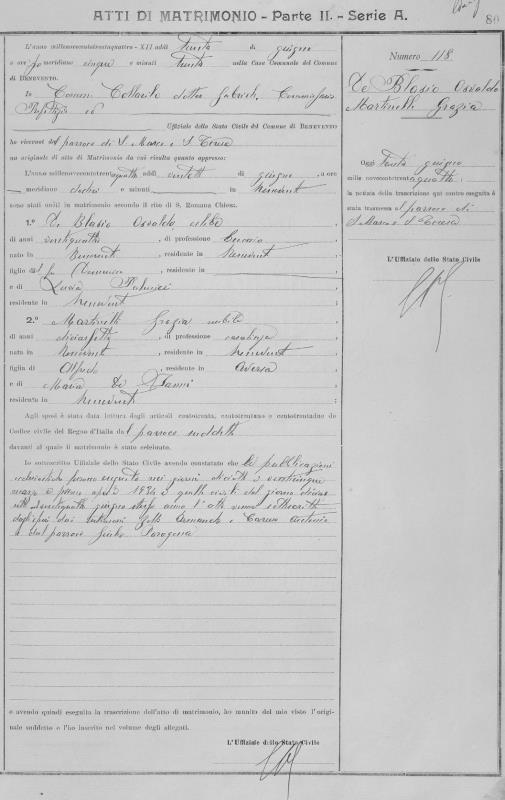 ATTI DI MATRIMONIO - Parte II. - Serie A.
80
L'anno millenovecentotrentaquattro - XII addì trenta di giugno
e ore po meridiane cinque e minuti trenta nella Casa Comunale del Comune
di Benevento.
Io Comm. Collarile dottor Gabriele, Commissario
Prefettizio
Uffiziale dello Stato Civile del Comune di Benevento
ho ricevuto dal parroco di S. Marco e S. Teresa
un originale di atto di Matrimonio da cui risulta quanto appresso:
L'anno millenovecentotrentaquattro addì di giugno, a ore
meridiane dodici e minuti in Benevento
sono stati uniti in matrimonio secondo il rito di S. Romana Chiesa.
1.° De Blasio Osvaldo, celibe
di anni ventiquattro, di professione
nato in Benevento, residente in Benevento,
figlio del fu Domenico, residente in
e di Lucia Palmieri
residente in Benevento;
2.° Martinelli Grazia nubile
di anni diciassette, di professione casalinga
nata in Benevento, residente in Benevento
figlia di Alfredo, residente in Aversa
e di Maria De Ianni
residente in Benevento;
Agli sposi è stata data lettura degli articoli centotrenta, centotrentuno e centotrentadue del
Codice civile del Regno d'Italia dal parroco suddetto
davanti al quale il matrimonio è stato celebrato.
Io sottoscritto Uffiziale dello Stato Civile avendo constatato che le pubblicazioni
ecclesiastiche furono eseguite nei giorni diciotto e venticinque
marzo e primo aprile 1934 e quelle civili dal giorno
giugno stesso anno l'atto venne sottoscritto
dagli sposi dai testimoni Armando e Antonio
e dal parroco Giulio
e avendo quindi eseguita la trascrizione dell'atto di matrimonio, ho munito del mio visto l'origi-
nale suddetto e l'ho inscritto nel volume degli allegati.
L'Uffiziale dello Stato Civile
Numero 118
De Blasio Osvaldo
Martinelli Grazia
Oggi trenta giugno
mille novecentotrentaquattro
la notizia della trascrizione qui contro eseguita è
stata trasmessa al parroco di
S. Marco e S. Teresa
L'Uffiziale dello Stato Civile